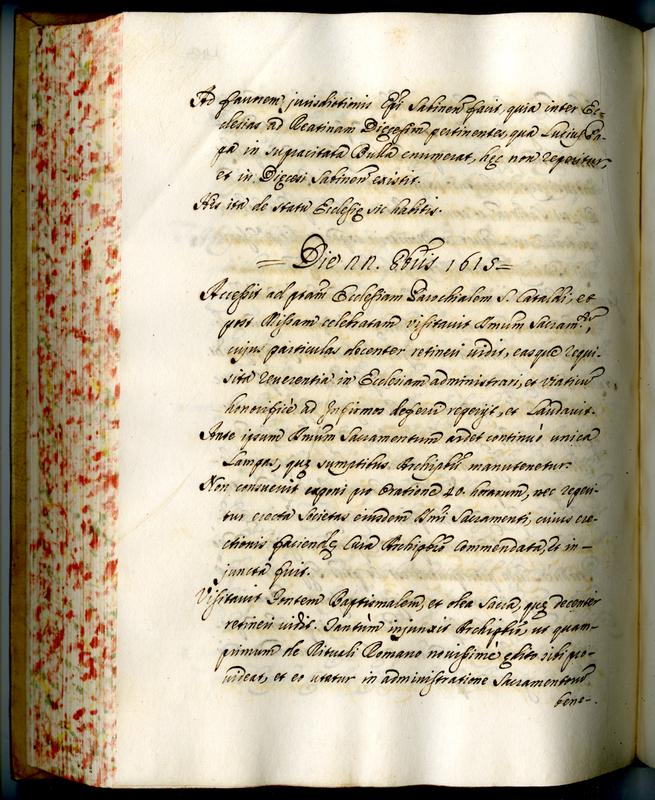 Ad favorem jurisdictionis Epi Sabinen facit, quia inter Ec=
clesias ad Reatinam Dięcesim pertinentes, qua Lucius Pa-
pa in supracitata Bulla enumerat, hęc non reperitur,
et in Dięcesi Sabinen existit.
His ita de statu Ecclesię sic habitis.
= Die 22. 8bris 1615 =
Accessit ad pram Ecclesiam Parochialem S. Cataldi, et
post Missam celebratam visitavit Smum Sacramtum,
cujus particulas decenter retineri vidit, easque requi-
sita reverentia in Ecclesiam administrari, et viaticum
honorificè ad Infirmos deferri reperijt, et Laudavit.
Ante ipsum Smum Sacramentum ardet continuò unica
Lampas, quę sumptibus Archipbri manutenetur.
Non consuevit exponi pro Oratione 40. horarum, nec reperi-
tur erecta Societas eiusdem Smi Sacramenti, cuius ere-
ctionis faciendę Cura Archipbro Commendata, et in-
juncta fuit.
Visitavit Fontem Baptismalem, et olea Sacra, quę decenter
retineri vidit. Tantùm injunxit Archipbro, ut quam-
primum de Rituali Romano novissimè edito sibi pro-
videat, et eo utatur in administratione Sacramentorum
bene-